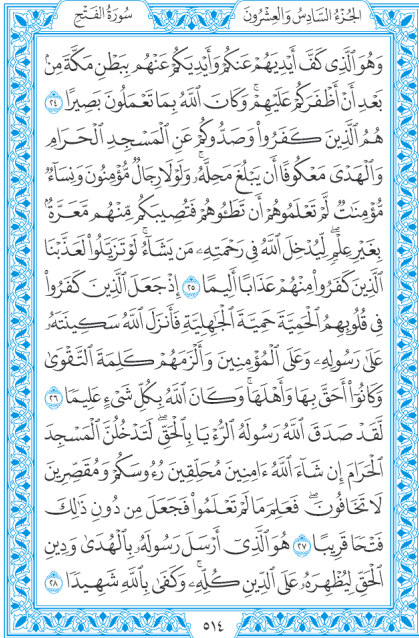 سُورَةُ الفَتْحِ
الجُزْءُ السَّادِسُ وَالعِشْرُونَ
وَهُوَ ٱلَّذِى كَفَّ أَيْدِيَهُمْ عَنكُمْ وَأَيْدِيَكُمْ عَنْهُم بِبَطْنِ مَكَّةَ مِنۢ
بَعْدِ أَنْ أَظْفَرَكُمْ عَلَيْهِمْ ۚ وَكَانَ ٱللَّهُ بِمَا تَعْمَلُونَ بَصِيرًا ٢٤
هُمُ ٱلَّذِينَ كَفَرُوا۟ وَصَدُّوكُمْ عَنِ ٱلْمَسْجِدِ ٱلْحَرَامِ
وَٱلْهَدْىَ مَعْكُوفًا أَن يَبْلُغَ مَحِلَّهُۥ ۚ وَلَوْلَا رِجَالٌ مُّؤْمِنُونَ وَنِسَآءٌ
مُّؤْمِنَـٰتٌ لَّمْ تَعْلَمُوهُمْ أَن تَطَـُٔوهُمْ فَتُصِيبَكُم مِّنْهُم مَّعَرَّةٌۢ
بِغَيْرِ عِلْمٍ ۖ لِّيُدْخِلَ ٱللَّهُ فِى رَحْمَتِهِۦ مَن يَشَآءُ ۚ لَوْ تَزَيَّلُوا۟ لَعَذَّبْنَا
ٱلَّذِينَ كَفَرُوا۟ مِنْهُمْ عَذَابًا أَلِيمًا ٢٥ إِذْ جَعَلَ ٱلَّذِينَ كَفَرُوا۟
فِى قُلُوبِهِمُ ٱلْحَمِيَّةَ حَمِيَّةَ ٱلْجَـٰهِلِيَّةِ فَأَنزَلَ ٱللَّهُ سَكِينَتَهُۥ
عَلَىٰ رَسُولِهِۦ وَعَلَى ٱلْمُؤْمِنِينَ وَأَلْزَمَهُمْ كَلِمَةَ ٱلتَّقْوَىٰ
وَكَانُوٓا۟ أَحَقَّ بِهَا وَأَهْلَهَا ۚ وَكَانَ ٱللَّهُ بِكُلِّ شَىْءٍ عَلِيمًا ٢٦
لَّقَدْ صَدَقَ ٱللَّهُ رَسُولَهُ ٱلرُّءْيَا بِٱلْحَقِّ ۖ لَتَدْخُلُنَّ ٱلْمَسْجِدَ
ٱلْحَرَامَ إِن شَآءَ ٱللَّهُ ءَامِنِينَ مُحَلِّقِينَ رُءُوسَكُمْ وَمُقَصِّرِينَ
لَا تَخَافُونَ ۖ فَعَلِمَ مَا لَمْ تَعْلَمُوا۟ فَجَعَلَ مِن دُونِ ذَٰلِكَ
فَتْحًا قَرِيبًا ٢٧ هُوَ ٱلَّذِىٓ أَرْسَلَ رَسُولَهُۥ بِٱلْهُدَىٰ وَدِينِ
ٱلْحَقِّ لِيُظْهِرَهُۥ عَلَى ٱلدِّينِ كُلِّهِۦ ۚ وَكَفَىٰ بِٱللَّهِ شَهِيدًا ٢٨
٥١٤